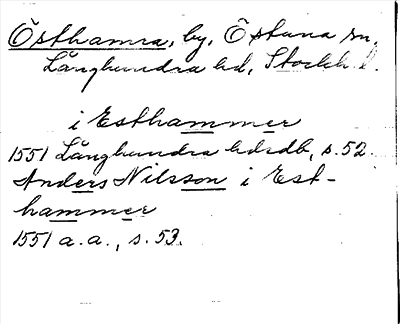 Östhamra, by, Östuna sn,
Långhundra hd, Stockh. l.
i Esthammer
1551 Långhundra hdrdb, s. 52.
Anders Nilsson i Est-
hammer
1551 a. a., s. 53.